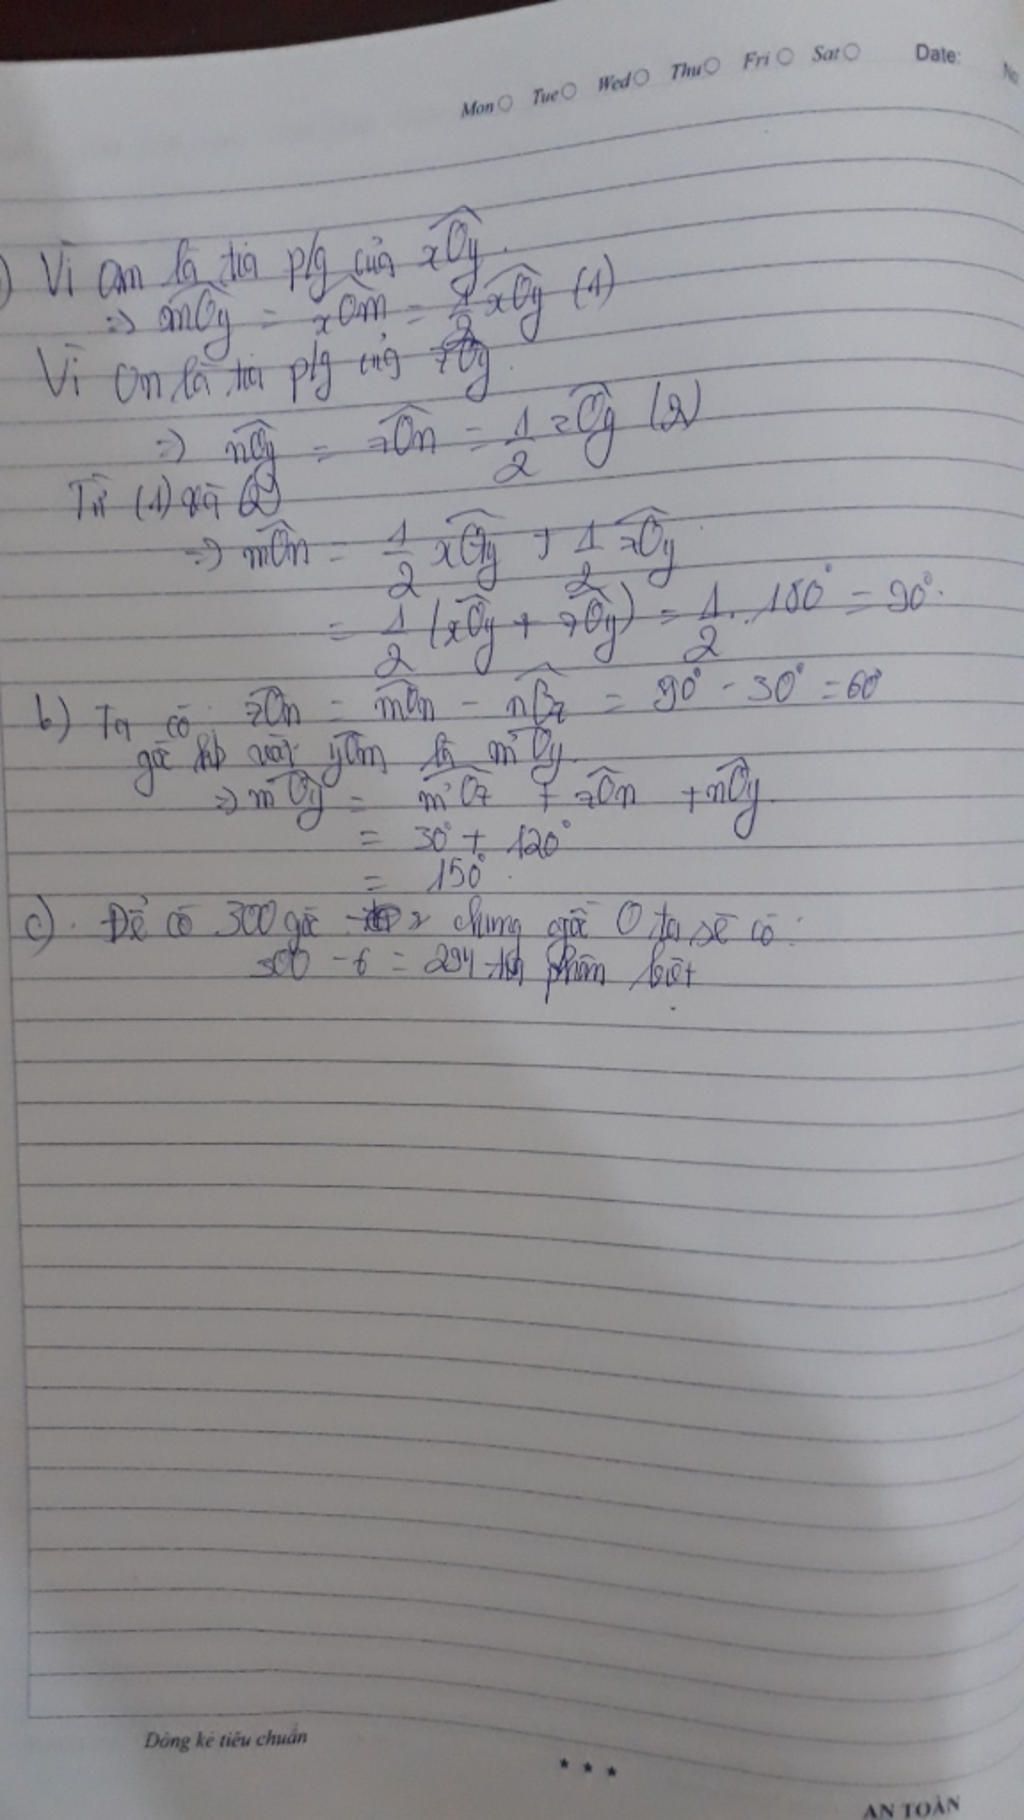 Mon Tue Wed Thu Fri Sat Date: No
) Vì Om là tia p/g của xOy.
=> mOy = xOm = 1/2 xOy (1)
Vì On là tia p/g của zOy.
=> nOy = zOn = 1/2 zOy (2)
Từ (1) và (2)
=> mOn = 1/2 xOy + 1/2 zOy
= 1/2 (xOy + zOy) = 1/2 . 180° = 90°.
b) Ta có zOn = mOn - = 90° - 30° = 60°
góc với yOm là m'Oy.
=> m'Oy = m'Oz + zOn + nOy.
= 30° + 120°
= 150°.
c). Để có 300 góc chung gốc O ta sẽ có:
300 - 6 = 294 tia phân biệt
Dòng kẻ tiêu chuẩn
★ ★ ★
AN TOÀN